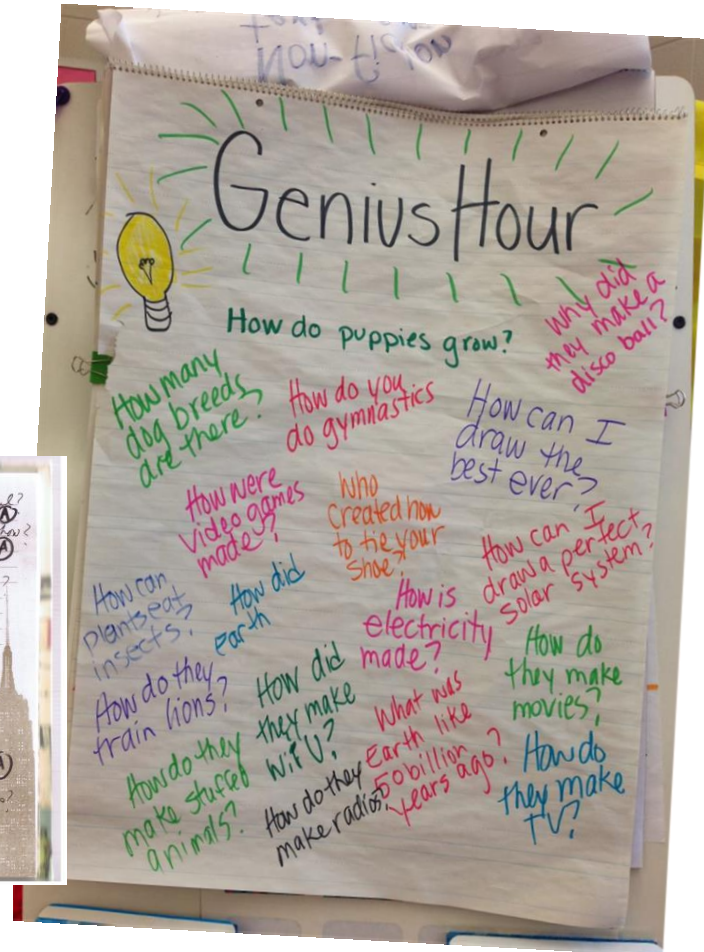 Non-fiction
Genius Hour
How do puppies grow?
Why did
they make a
disco ball?
How many
dog breeds
are there?
How do you
do gymnastics
How can I
draw the
best ever?
How were
video games
made?
Who
created how
to tie your
shoe?
How can I
draw a perfect
solar system?
How can
plants eat
insects?
How did
earth
How is
electricity
made?
How do they
train lions?
How did
they make
Wii U?
What was
Earth like
50 billion
years ago?
How do
they make
movies?
How do they
make stuffed
animals?
How do they
make radios?
How do
they make
TV?